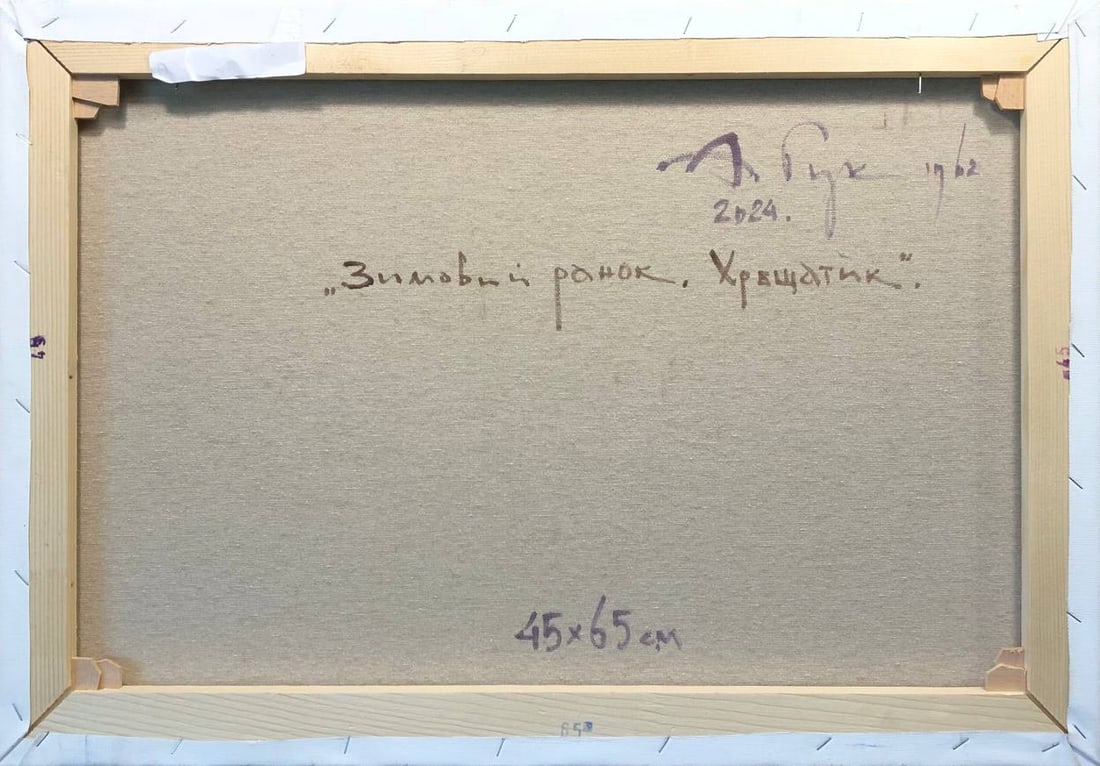 А. Гук 1962
2024.
„Зимовий ранок. Хрещатик".
45
45
45×65 см
65